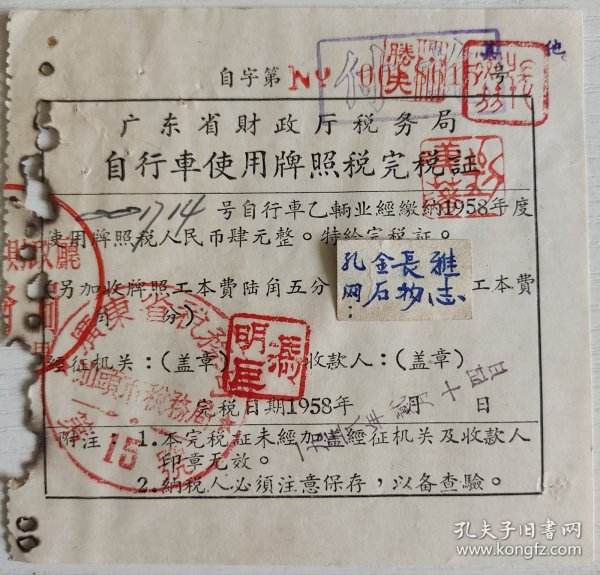 其他
自字第 号
广东省财政厅税务局
自行車使用牌照税完税証
1714号自行車乙輛业經繳納1958年度
使用牌照税人民币肆元整。特給完税証。
(另加收牌照工本費陆角五分 工本費
角 分)
經征机关：(盖章) 收款人：(盖章)
完税日期1958年 月 日
附注：1.本完税証未經加盖經征机关及收款人
印章无效。
2.納税人必須注意保存，以备查驗。
孔金長雅
网石物志
：
勝
馮明
15
十四日
孔夫子旧书网
www.kongfz.com